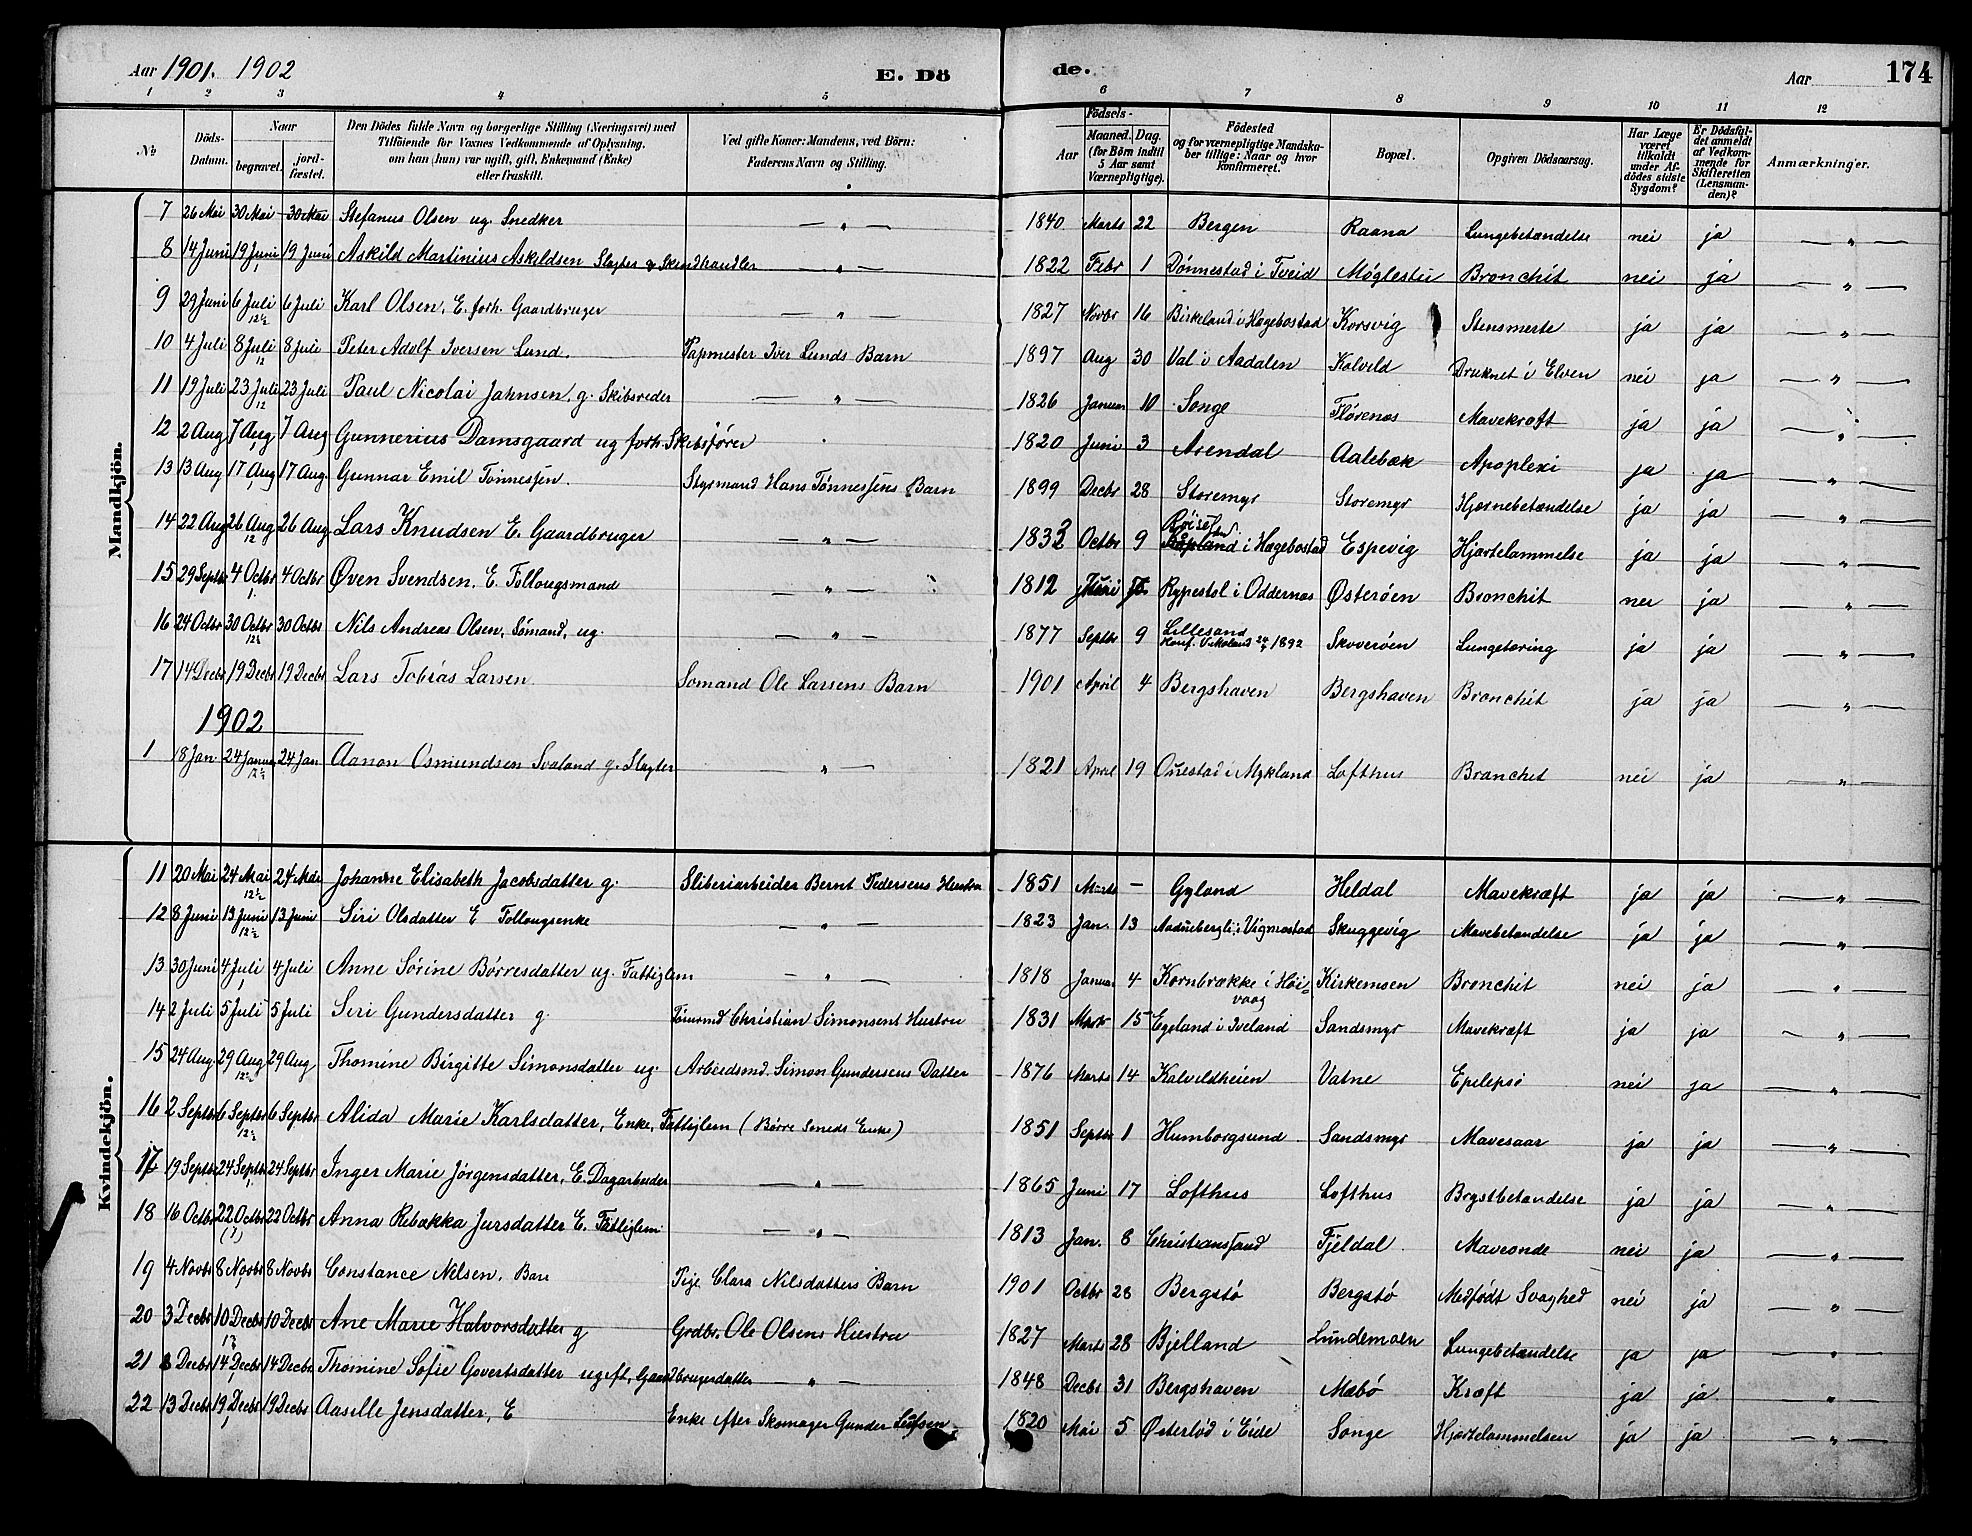 Aar 1901. 1902 E. Dö
de. Aar 174
1 2 3 4 5 6 7 8 9 10 11 12
№ Döds-Datum. Naar begravet. jordfæstet. Den Dödes fulde Navn og borgerlige Stilling (Næringsvei) med Tilföiende for Voxnes Vedkommende af Oplysning, om han (hun) var ugift, gift, Enkemand (Enke) eller fraskilt. Ved gifte Koner: Mandens, ved Börn: Faderens Navn og Stilling. Födsels- Aar Maaned. Dag. (for Börn indtil 5 Aar samt Værnepligtige). Födested og for værnepligtige Mandskaber tillige: Naar og hvor konfirmeret. Bopæl. Opgiven Dödsaarsag. Har Læge været tilkaldt under Afdödes sidste Sygdom? Er Dödsfaldet anmeldt af Vedkommende for Skifteretten (Lensmanden)? Anmærkninger.
Mandkjön.
7 26 Mai 30 Mai 30 Mai Stefanus Olsen ug. Snedker — " — 1840 Marts 22 Bergen Raana Lungebetændelse nei ja — " —
8 14 Juni 19 Juni 19 Juni Askild Martinius Askildsen Slagter & Skindhandler — " — 1822 Febr 1 Dønnestad i Tveid Møglestu Bronchit nei ja — " —
9 29 Juni 6 Juli 12½ 6 Juli Karl Olsen, E. forh. Gaardbruger — " — 1827 Novbr 16 Birkeland i Hægebostad Korsvig Stensmerte ja ja — " —
10 4 Juli 8 Juli 12 8 Juli Peter Adolf Iversen Lund. Tapmester Iver Lunds Barn 1897 Aug 30 Val i Aadalen Kalvild Druknet i Elven nei ja — " —
11 19 Juli 23 Juli 12 23 Juli Paul Nicolai Jahnsen, g. Skibsreder — " — 1826 Januar 10 Songe Flørenæs Mavekræft ja ja "
12 2 Aug 7 Aug 7 Aug Gunnerius Damsgaard ug forh. Skibsfører 1820 Juni 3 Arendal Aalebæk Apoplexi ja ja — " —
13 13 Aug 17 Aug 17 Aug. Gunnar Emil Tønnessen. Stysmand Hans Tønnessens Barn 1899 Decbr 28 Storemyr Storemyr Hjernebetændelse ja ja — " —
14 22 Aug 26 Aug 12 26 Aug. Lars Knudsen E. Gaardbruger — " — 1832 Octbr 9 i Hægebostad Espevig Hjertelammelse ja ja — " —
15 29 Septbr 4 Octbr 4 Octbr Øven Svendsen, E. Follougsmand — " — 1812 Rypestøl i Oddernæs Østerøen Bronchit nei ja — " —
16 24 Octbr 30 Octbr 12½ 30 Octbr Nils Andreas Olsen, Sømand, ug. — " — 1877 Septbr 9 Lillesand Konf. Vikeland 24/4 1892 Skoverøen Lungetæring ja ja — " —
17 14 Decbr 19 Decbr 19 Decbr Lars Tobias Larsen Sømand Ole Larsens Barn 1901 April 4 Bergshaven Bergshaven Bronchit ja ja — " —
1902
1 18 Jan 24 Januar 12½ 24 Jan Aanon Osmundsen Svaland g. Slagter — " — 1821 April 19 Ouestad i Mykland Lofthus Bronchit nei ja — " —
Kvindekjön.
11 20 Mai 24 Mai 12½ 24 Mai Johanne Elisabeth Jacobsdatter g. Sliberiarbeider Bernt Pedersens Hustru 1851 Marts — Gyland Heldal Mavekræft ja ja — " —
12 8 Juni 13 Juni 12½ 13 Juni Siri Olsdatter E Follougsenke — " — 1823 Jan. 13 i Vigmostad Skuggevig Mavebetændelse ja ja — " —
13 30 Juni 4 Juli 4 Juli Anne Sørine Børresdatter ug. Fattiglem — " — 1818 Januar 4 Kornbrække i Høivaag Kirkemoen Bronchit nei ja — " —
14 2 Juli 5 Juli 5 Juli Siri Gundersdatter g. Christian Simonsens Hustru 1831 Marts 15 Egeland i Iveland Sandsmyr Mavekræft ja ja — " —
15 24 Aug. 29 Aug 12½ 29 Aug Thomine Birgitte Simonsdatter ug. Arbeidsmd. Simon Gundersens Datter 1876 Marts 14 Kalvildheien Vatne Epilepsi nei ja — " —
16 2 Septbr 6 Septbr 12½ 6 Septbr Alida Marie Karlsdatter, Enke, Fattiglem (Børre Smeds Enke) 1851 Septbr 1 Humborgsund Sandsmyr Mavesaar ja ja — " —
17 19 Septbr 24 Septbr 24 Septbr Inger Marie Jørgensdatter, E. Dagarbeider — " — 1865 Juni 17 Lofthus Lofthus Brystbetændelse ja ja — " —
18 16 Octbr 22 Octbr 22 Octbr Anna Rebekka Jursdatter E. Fattiglem — " — 1813 Jan. 8 Christianssand Fjeldal Maveonde nei ja — " —
19 4 Novbr 8 Novbr 8 Novbr Constance Nilsen, Barn Pige Clara Nilsdatters Barn 1901 Octbr 28 Bergstø Bergstø Medfødt Svaghed nei ja — " —
20 3 Decbr 10 Decbr 10 Decbr Ane Marie Halvorsdatter g Grdbr. Ole Olsens Hustru 1827 Marts 28 Bjelland Lundemoen Lungebetændelse ja ja — " —
21 8 Decbr 14 Decbr 14 Decbr Thomine Sofie Govertsdatter ugift, Gaardbrugerdatter — " — 1848 Decbr 31 Bergshaven Mæbø Kræft ja ja — " —
22 13 Decbr 19 Decbr 19 Decbr Aasille Jensdatter, E Enke efter Skomager Gunder 1820 Mai 5 Østerlod i Eide Songe Hjertelammelsen ja ja — " —